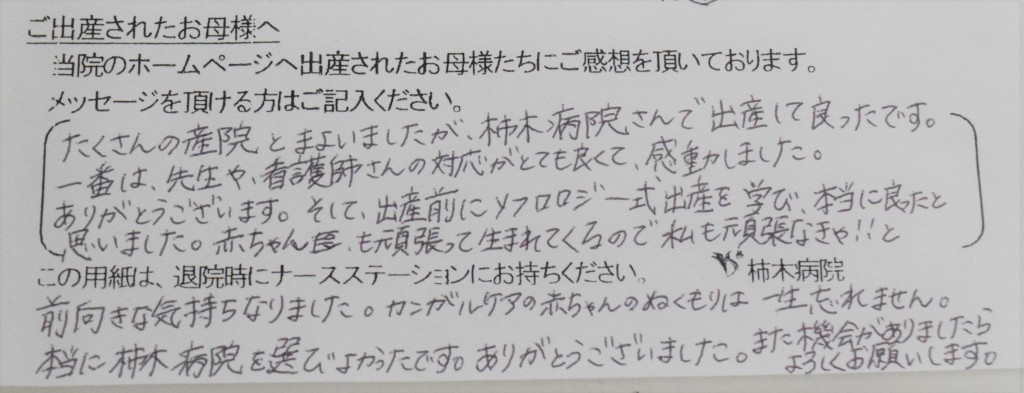 ご出産されたお母様へ
当院のホームページへ出産されたお母様たちにご感想を頂いております。
メッセージを頂ける方はご記入ください。
たくさんの産院とまよいましたが、柿木病院さんで出産して良ったです。
一番は、先生や、看護師さんの対応がとても良くて、感動しました。
ありがとうございます。そして、出産前にソフロロジー式出産を学び、本当に良たと
思いました。赤ちゃん、も頑張って生まれてくるので私も頑張なきゃ!!と
この用紙は、退院時にナースステーションにお持ちください。 柿木病院
前向きな気持ちなりました。カンガルケアの赤ちゃんのぬくもりは一生忘れません。
本当に柿木病院を選びよかったです。ありがとうございました。また機会がありましたら
よろしくお願いします。